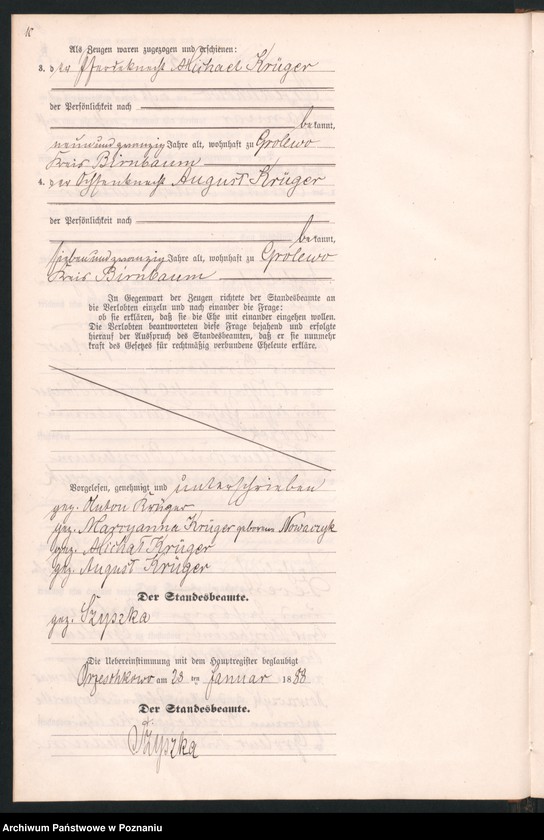 Als Zeugen waren zugezogen und erschienen:
3. der Pferdeknecht Michael Krüger
der Persönlichkeit nach
bekannt,
neunundzwanzig Jahre alt, wohnhaft zu Grolewo
Kreis Birnbaum
4. der Ochsenknecht August Krüger
der Persönlichkeit nach
bekannt,
siebenundzwanzig Jahre alt, wohnhaft zu Grolewo
Kreis Birnbaum
In Gegenwart der Zeugen richtete der Standesbeamte an
die Verlobten einzeln und nach einander die Frage:
ob sie erklären, daß sie die Ehe mit einander eingehen wollen.
Die Verlobten beantworteten diese Frage bejahend und erfolgte
hierauf der Ausspruch des Standesbeamten, daß er sie nunmehr
kraft des Gesetzes für rechtmäßig verbundene Eheleute erkläre.
Vorgelesen, genehmigt und unterschrieben
gez. Anton Krüger
gez. Maryanna Krüger geborene Nowaczyk
gez. Michał Krüger
gez. August Krüger
Der Standesbeamte.
gez. Szyszka
Die Uebereinstimmung mit dem Hauptregister beglaubigt
Orzeschkowo am 23 ten Januar 1888
Der Standesbeamte.
Szyszka
Archiwum Państwowe w Poznaniu